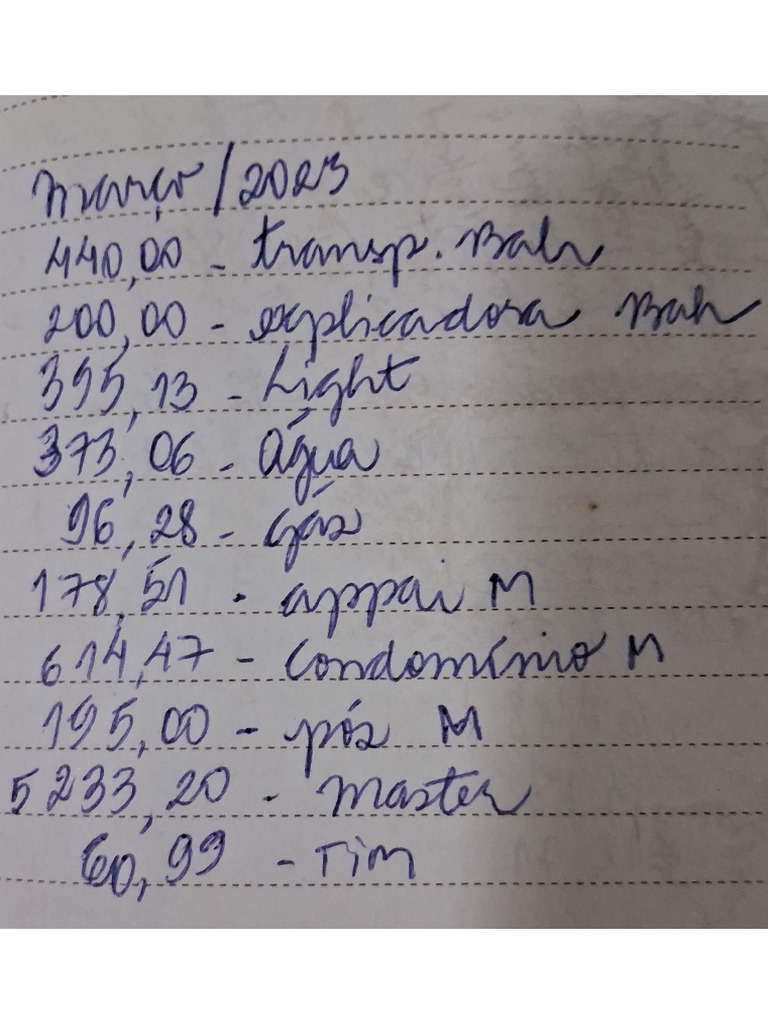 Março/2023
440,00 - transp. Bah
200,00 - explicadora Bah
395,13 - Light
373,06 - Água
96,28 - Gás
178,51 - appai M
614,47 - Condomínio M
195,00 - pós M
5233,20 - Master
60,99 - Tim